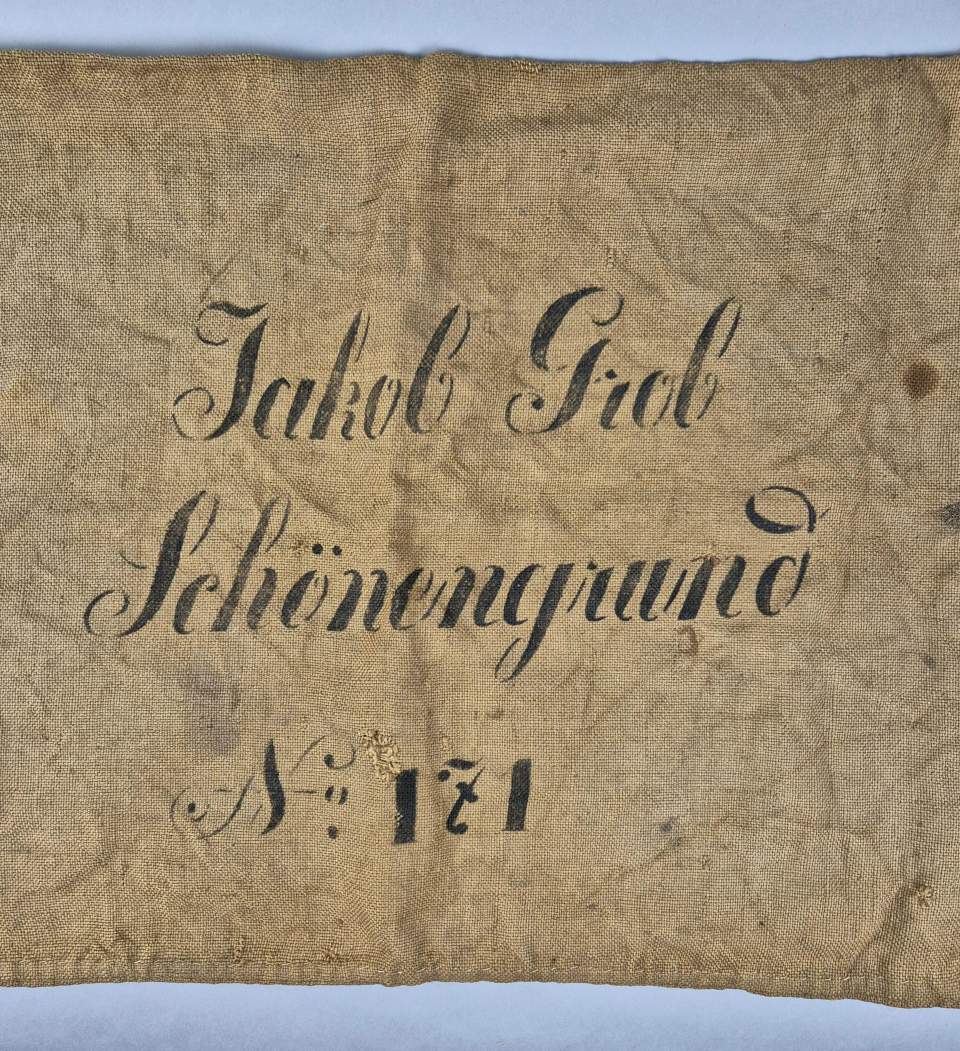 Jakob Grob
Schönengrund
No. 171